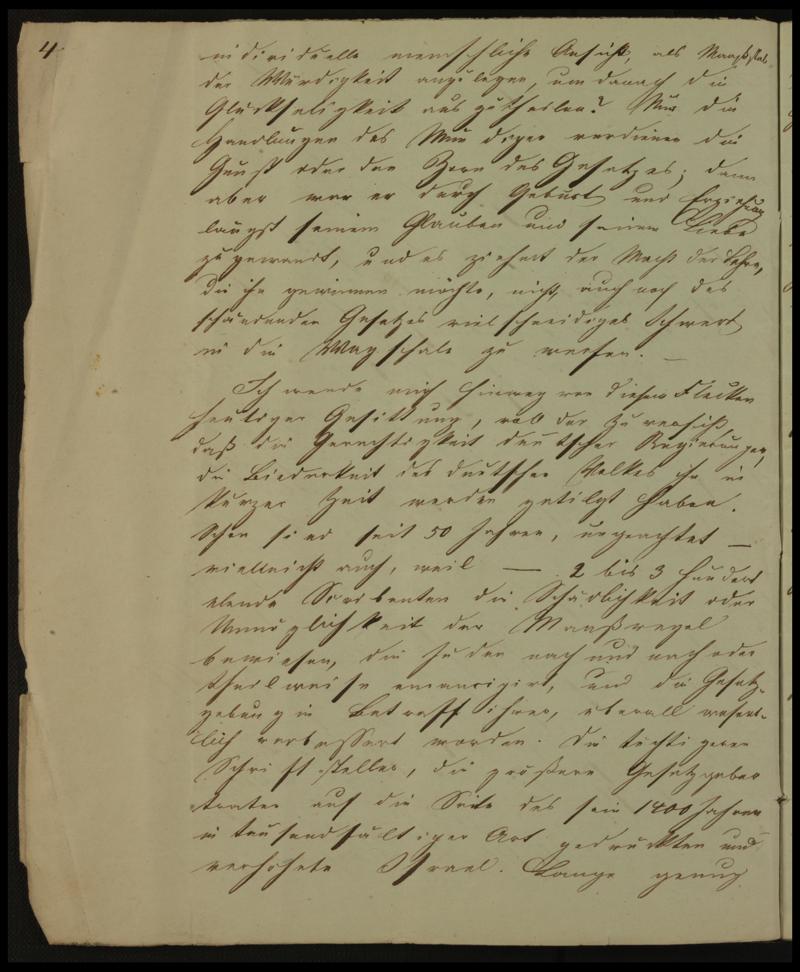 4.
individuelle menschliche Ansicht, als Maaßstab
der Würdigkeit anzulegen, um danach die
Glückseligkeit auszutheilen? Nur die
Handlungen des Mündigen verdienen die
Gunst oder den Zorn des Gesetzes; denn
aber war er durch Geburt und Erziehung
längst seinem Glauben und seiner Liebe
zugewandt, und es ziehmt der Macht der Lehre,
die ihn gewinnen möchte, nicht, auch noch des
schändenden Gesetzes vielschneidiges Schwert
in die Wagschale zu werfen. —
Ich wende mich hinweg von diesem Flecken
heutiger Gesittung, voll der Zuversicht,
daß die Gerechtigkeit deutscher Regierungen,
die Biederkeit des deutschen Volkes ihn in
kurzer Zeit werden getilgt haben.
Schon sind seit 50 Jahren, ungeachtet —
vielleicht auch, weil — 2 bis 3 hundert
elende Scribenten die Schädlichkeit oder
Unmöglichkeit der Maaßregel
bewiesen, die Juden nach und nach oder
theilweise emancipirt, und die Gesetz-
gebung in Betreff ihrer, überall wesent-
lich verbessert worden. Die tüchtigeren
Schriftsteller, die größern Gesetzgeber
traten auf die Seite des seit 1400 Jahren
in tausendfältiger Art gedrückten und
verhöhnten Israel. Lange genug